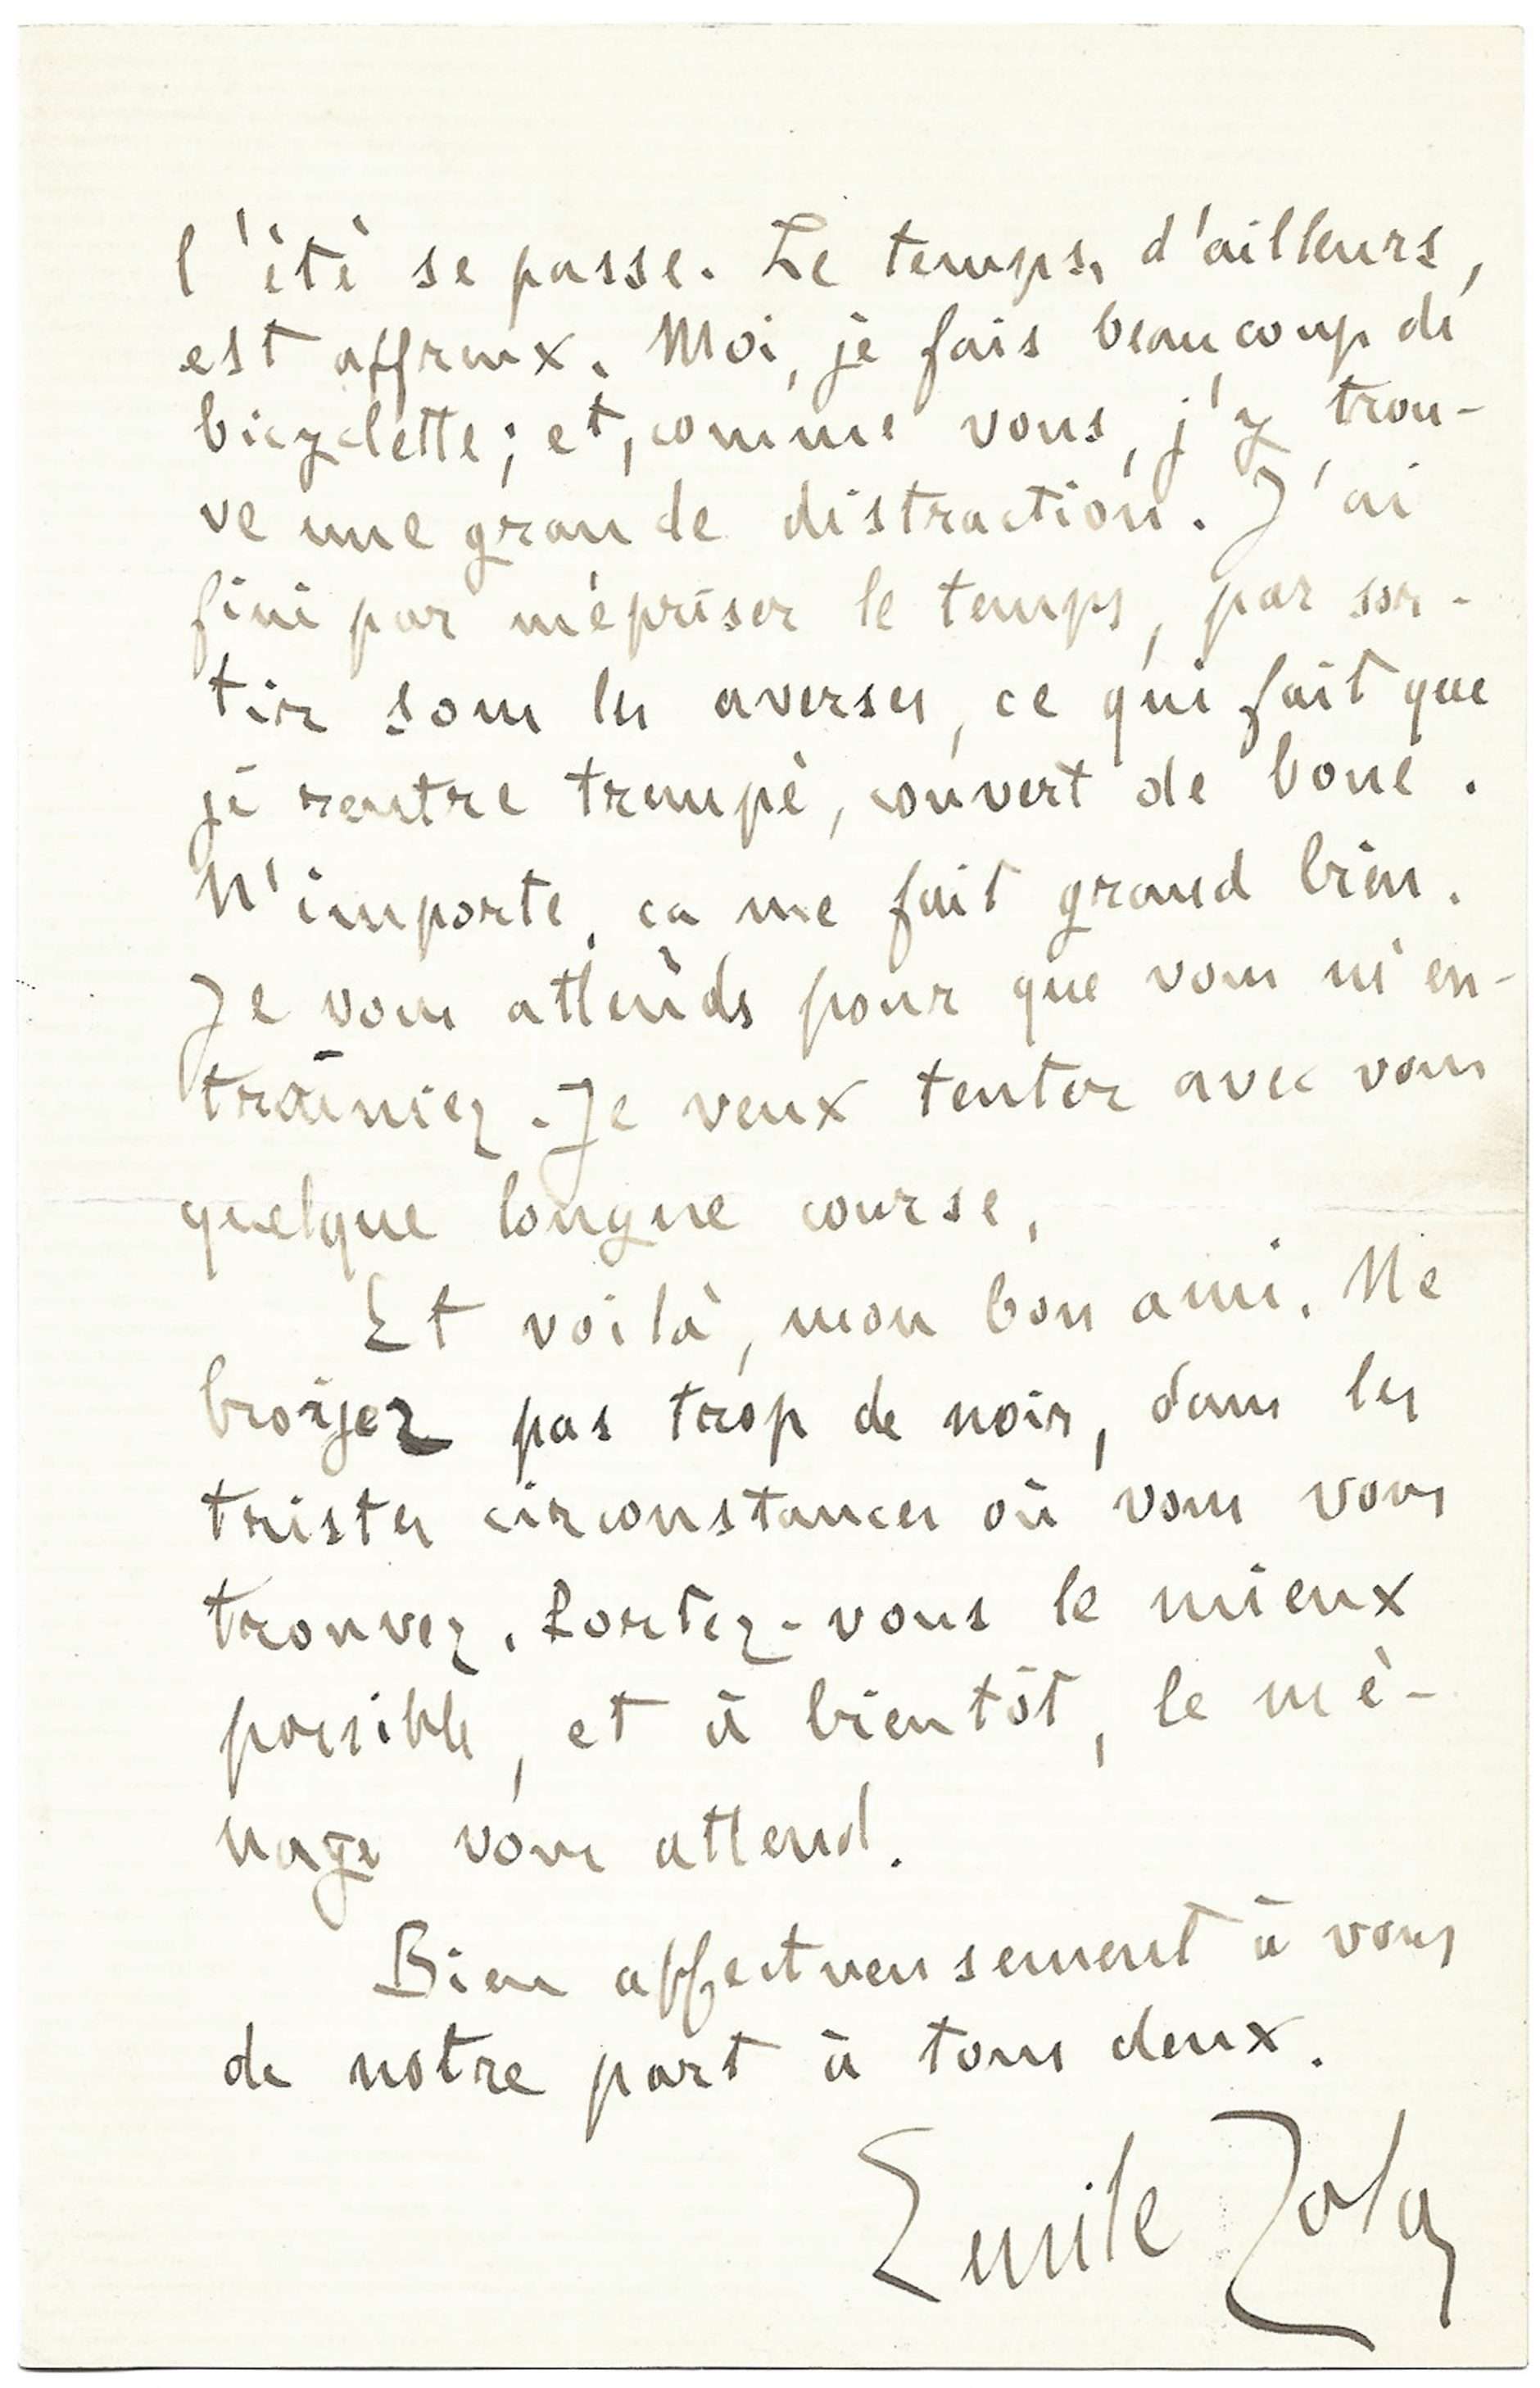 l'été se passe. Le temps, d'ailleurs,
est affreux. Moi, je fais beaucoup de
bicyclette ; et, comme vous, j'y trou-
ve une grande distraction. J'ai
fini par mépriser le temps, par sor-
tir sous les averses, ce qui fait que
je rentre trempé, couvert de boue.
N'importe, ça me fait grand bien.
Je vous attends pour que vous m'en-
traîniez. Je veux tenter avec vous
quelque longue course.
Et voilà, mon bon ami. Ne
broyez pas trop de noir, dans les
tristes circonstances où vous vous
trouvez. Portez-vous le mieux
possible, et à bientôt, le mé-
nage vous attend.
Bien affectueusement à vous
de notre part à tous deux.
Emile Zola